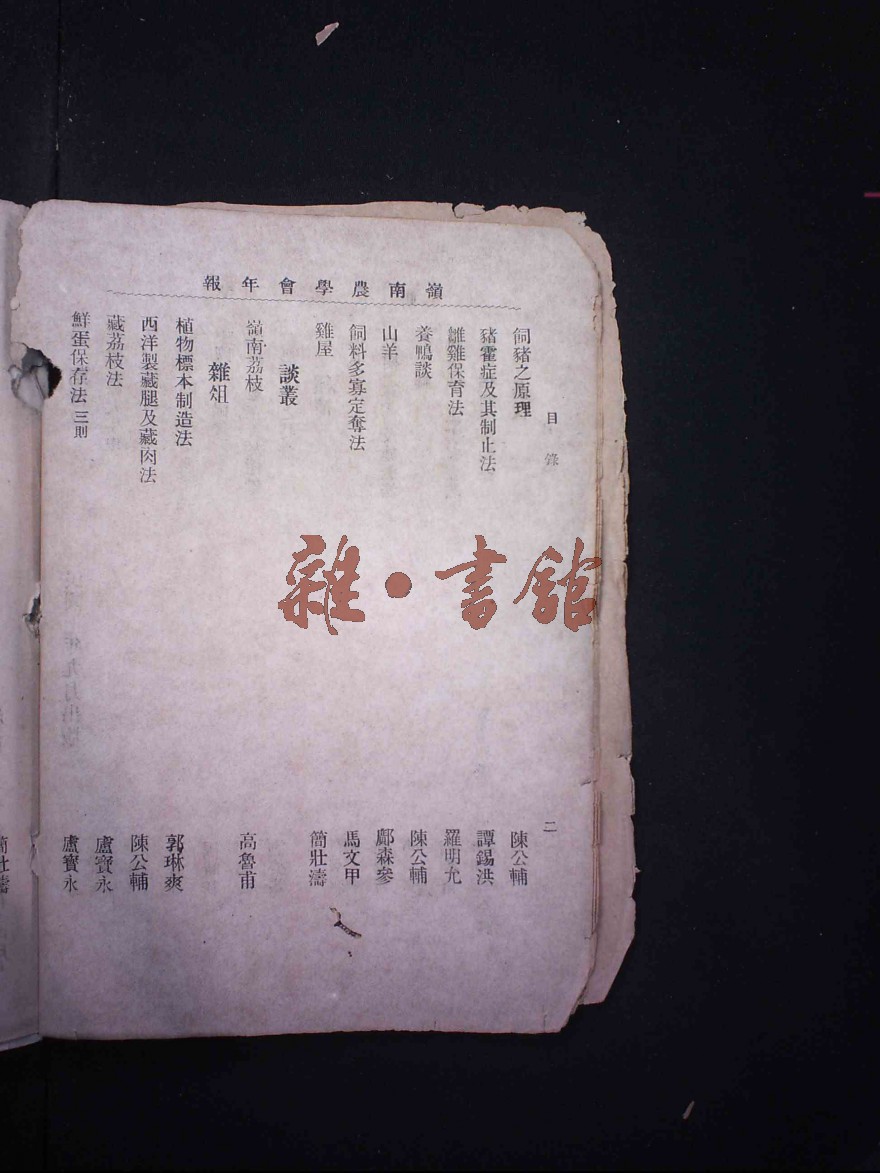 嶺南農學會年報
目錄 二
飼豬之原理 陳公輔
豬霍症及其制止法 譚錫洪
雛雞保育法 羅明允
養鴨談 陳公輔
山羊 鄺森參
飼料多寡定奪法 馬文甲
雞屋 簡壯濤
談叢
嶺南荔枝 高魯甫
雜俎
植物標本制造法 郭琳爽
西洋製藏腿及藏肉法 陳公輔
藏荔枝法 盧寶永
鮮蛋保存法三則 盧寶永
簡壯濤
雜·書館